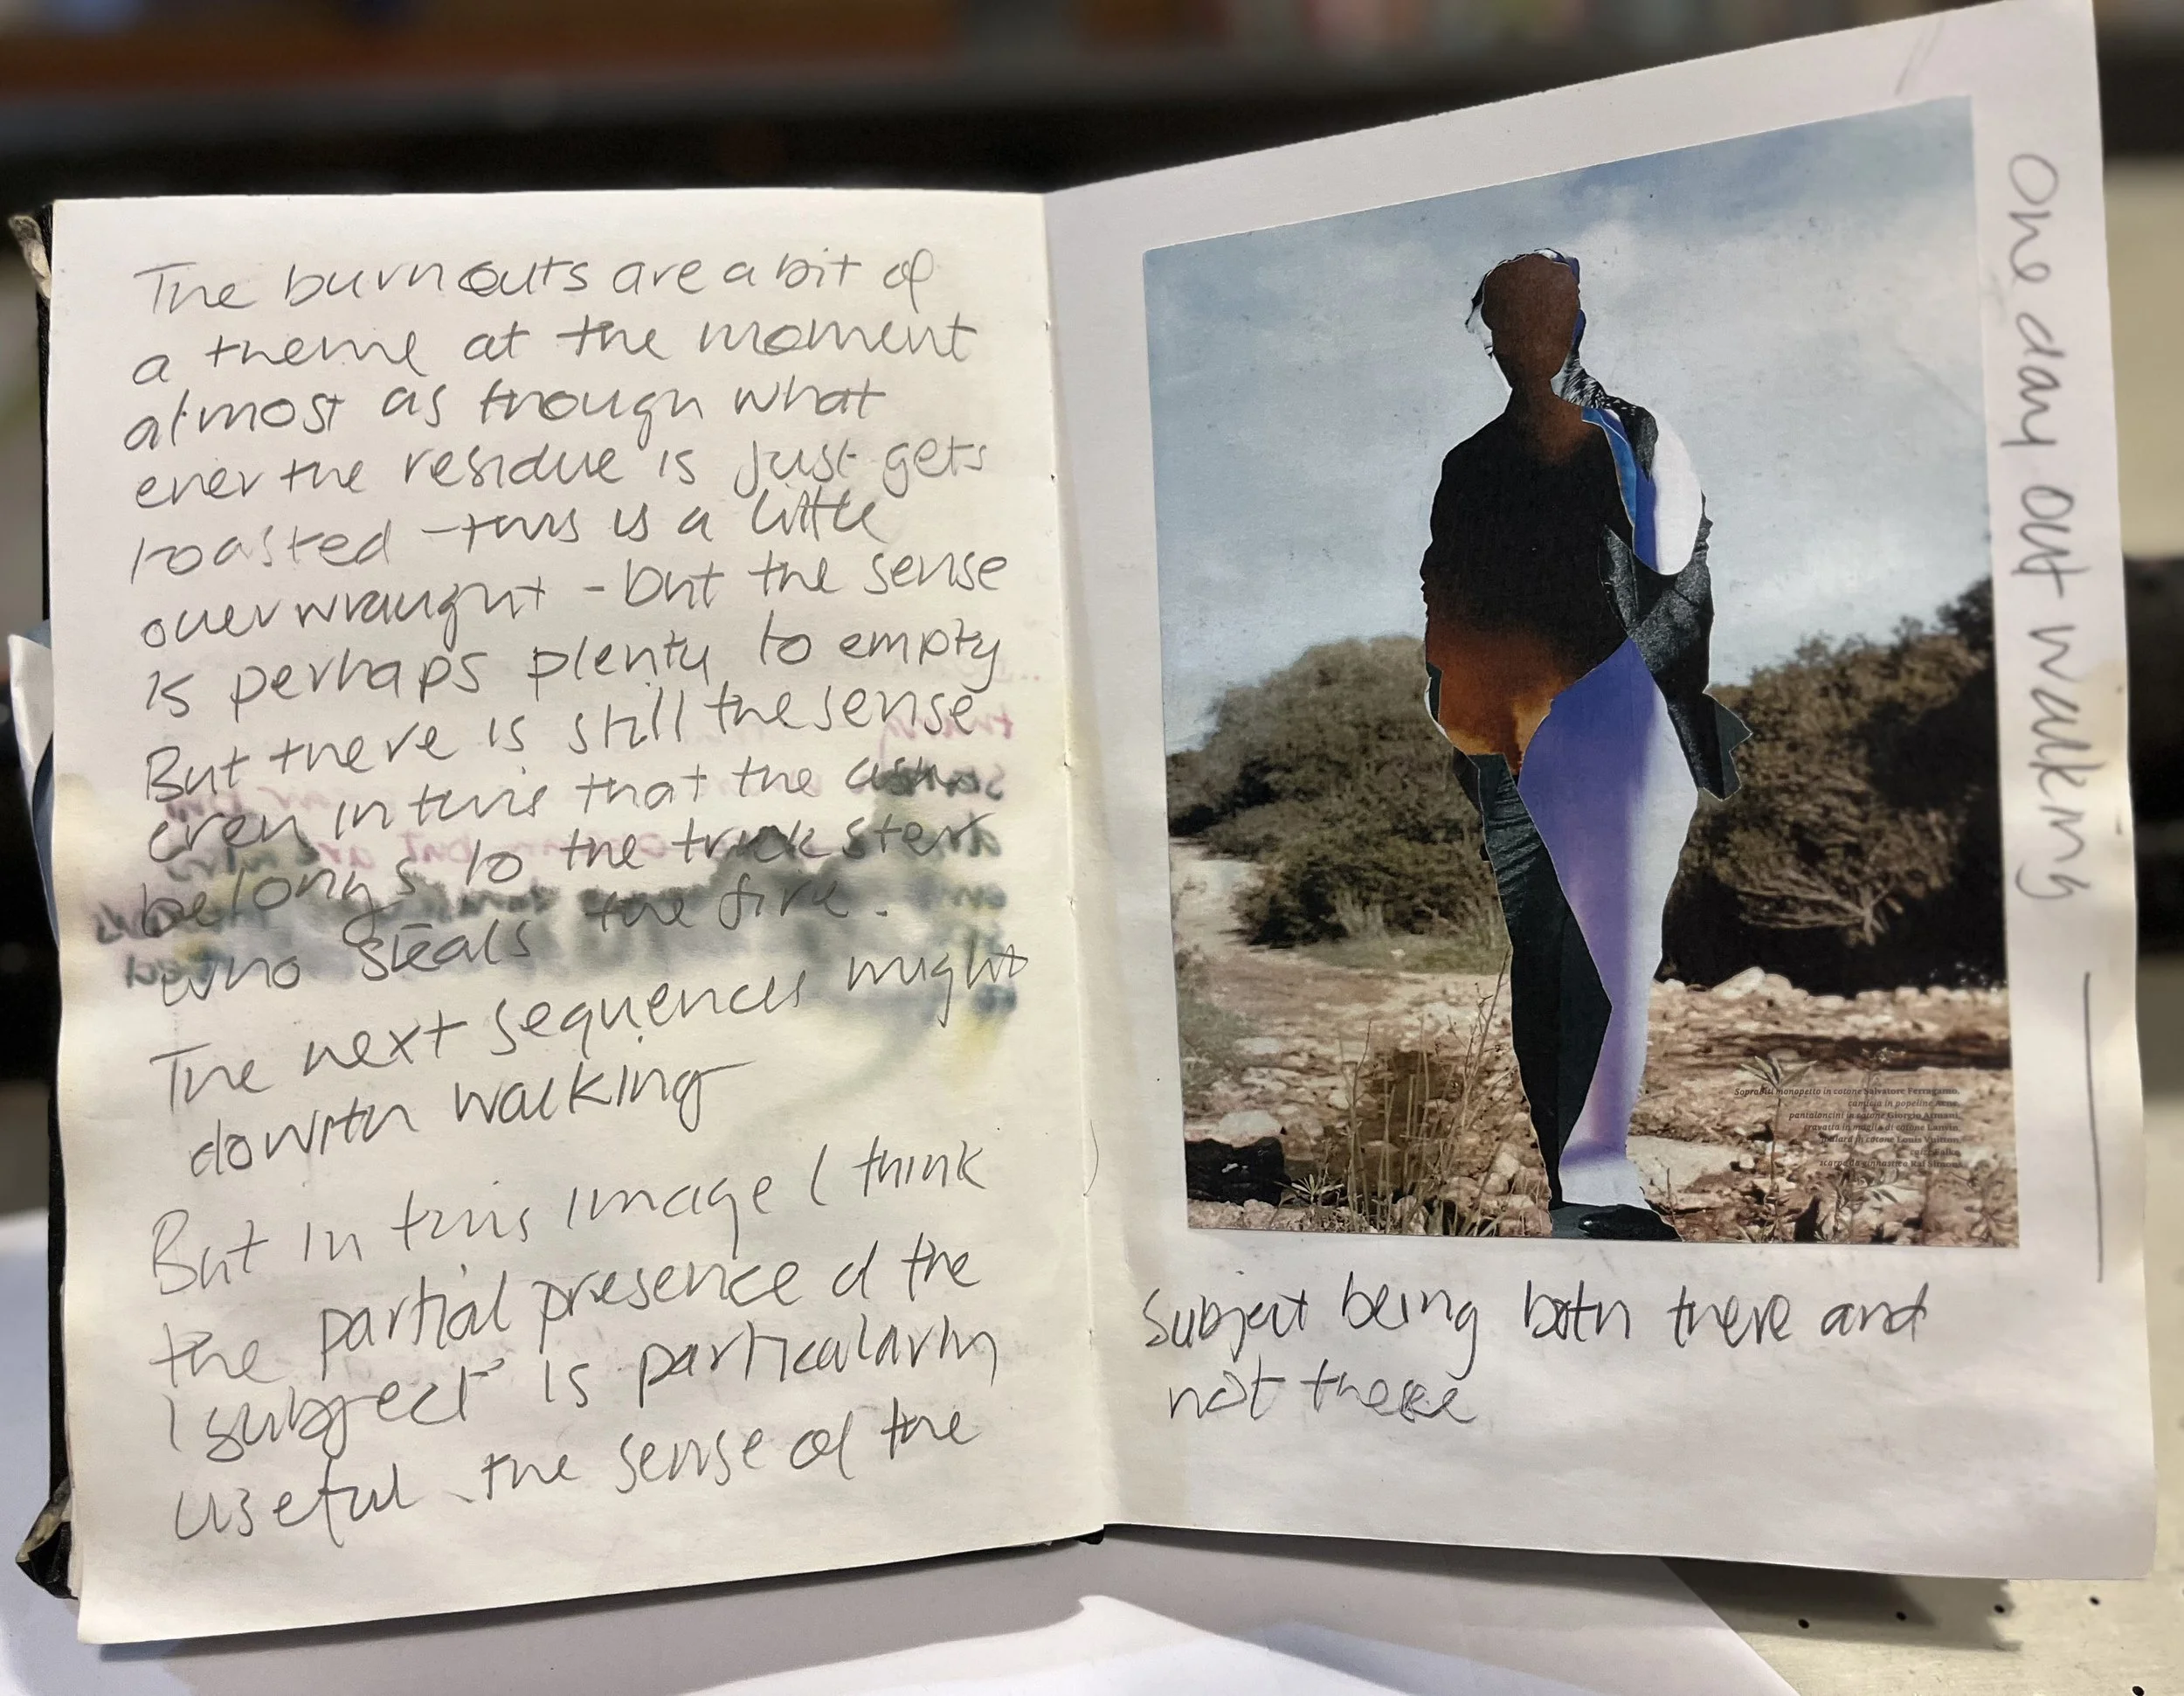 The burnouts are a bit of
a theme at the moment
almost as though what
ever the residue is just gets
roasted - this is a little
overwraught - but the sense
is perhaps plenty to empty
But there is still the sense
even in this that the ashes
belongs to the trickster
who steals the fire.
The next sequences might
dowith walking
But in this image I think
the partial presence of the
subject is particularly
useful - the sense of the
One day out walking —
Soprabiti monopetto in cotone Salvatore Ferragamo,
camicia in popeline Acne,
pantaloncini in cotone Giorgio Armani,
cravatta in maglia di cotone Lanvin,
foulard in cotone Louis Vuitton,
scarpe da ginnastica Raf Simons
Subject being both there and
not there